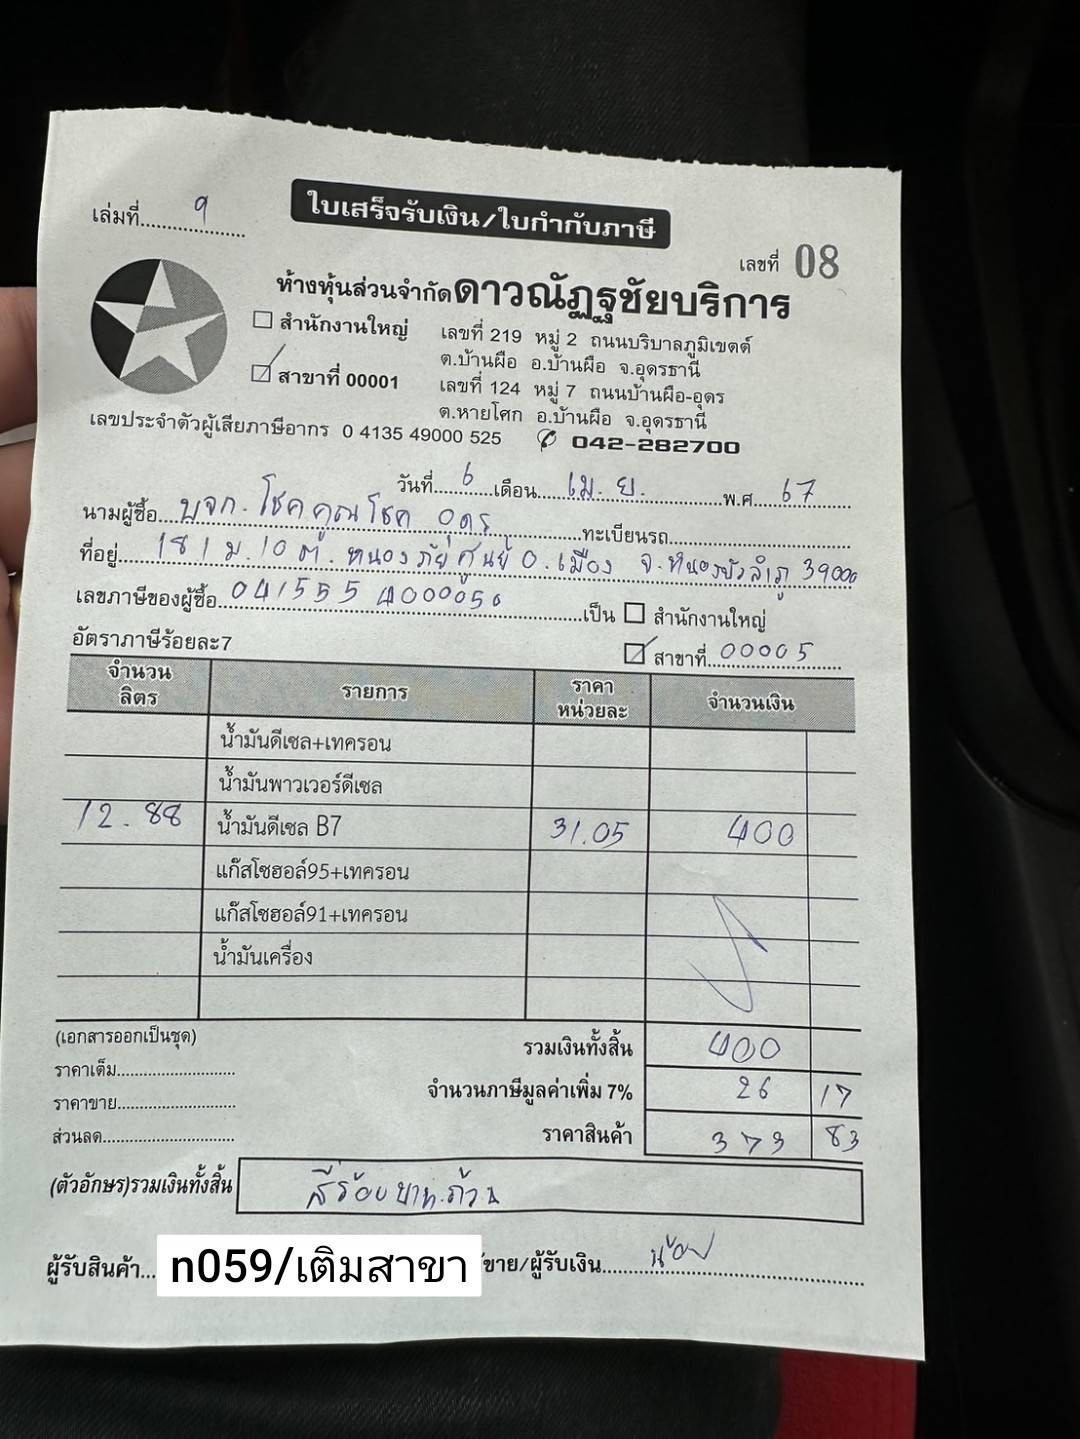 ใบเสร็จรับเงิน/ใบกำกับภาษี
เล่มที่ 9
เลขที่ 08
ห้างหุ้นส่วนจำกัดดาวณัฏฐชัยบริการ
สำนักงานใหญ่ เลขที่ 219 หมู่ 2 ถนนบริบาลภูมิเขตต์
ต.บ้านผือ อ.บ้านผือ จ.อุดรธานี
สาขาที่ 00001 เลขที่ 124 หมู่ 7 ถนนบ้านผือ-อุดร
ต.หายโศก อ.บ้านผือ จ.อุดรธานี
เลขประจำตัวผู้เสียภาษีอากร 0 4135 49000 525 042-282700
วันที่ 6 เดือน เม.ย. พ.ศ. 67
นามผู้ซื้อ บจก. โชคคูณโชค อุดร ทะเบียนรถ
ที่อยู่ 181 ม.10 ต.หนองภัยศูนย์ อ.เมือง จ.หนองบัวลำภู 39000
เลขภาษีของผู้ซื้อ 041555 4000050 เป็น สำนักงานใหญ่
อัตราภาษีร้อยละ7 สาขาที่ 00005
จำนวนลิตร รายการ ราคาหน่วยละ จำนวนเงิน
น้ำมันดีเซล+เทครอน
น้ำมันพาวเวอร์ดีเซล
12.88 น้ำมันดีเซล B7 31.05 400
แก๊สโซฮอล์95+เทครอน
แก๊สโซฮอล์91+เทครอน
น้ำมันเครื่อง
(เอกสารออกเป็นชุด) รวมเงินทั้งสิ้น 400
ราคาเต็ม
จำนวนภาษีมูลค่าเพิ่ม 7% 26 17
ราคาขาย
ส่วนลด ราคาสินค้า 373 83
(ตัวอักษร)รวมเงินทั้งสิ้น สี่ร้อยบาทถ้วน
ผู้รับสินค้า n059/เติมสาขา ขาย/ผู้รับเงิน น้อย